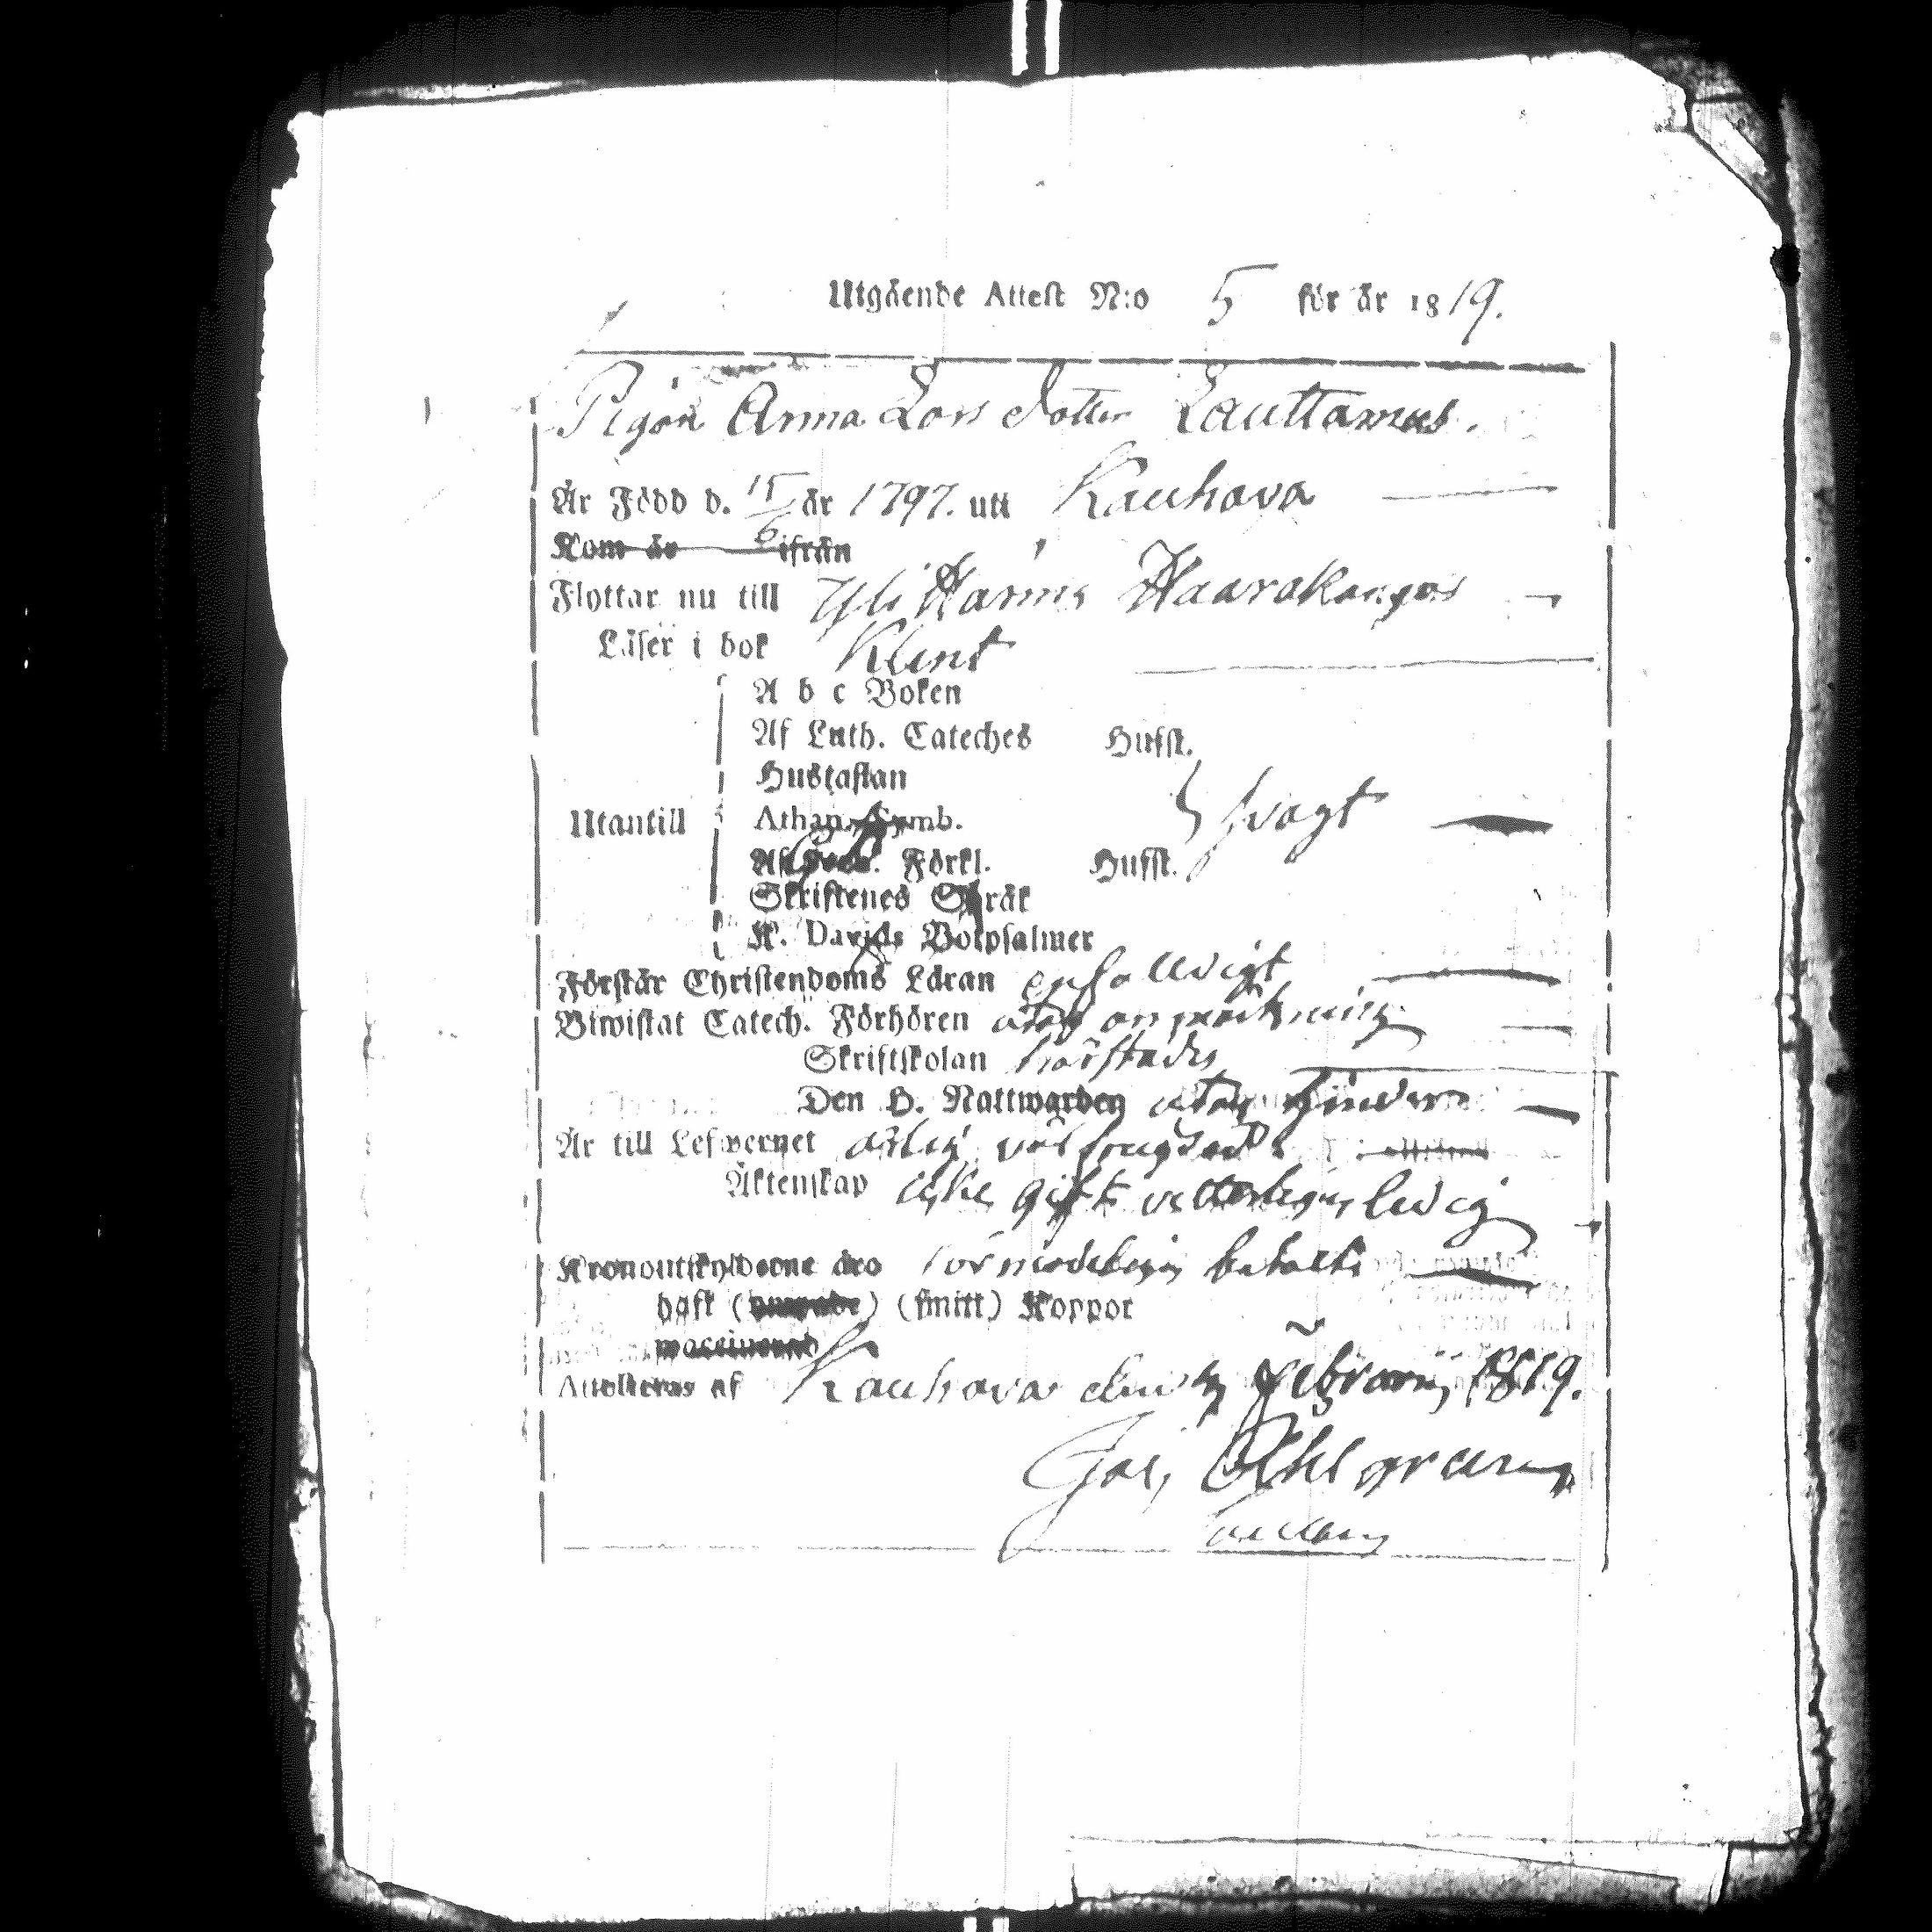 Utgående Attest N:o 5 för år 1819.
Pigan Anna Lars dotter Lauttamus.
År Född d. 15/6 år 1797. utt Kauhava
Kom år ifrån
Flyttar nu till Yli Härmä Haarakangas
Läser i bok Klent
A b c Boken
Af Luth. Cateches Hufst.
Hustaflan
Utantill Athan. Symb. svagt
Af Förkl. Hufst.
Skriftenes Språk
K. Davids Botpsalmer
Förstår Christendoms Läran enfalldigt
Biwistat Catech. Förhören utan anmärkning
Skriftskolan
Den H. Nattwarden utan hinder
Är till Lefwernet ärlig
Äktenskap icke gift ledig
Kronoutskylderne äro förmodeligen betalte
haft (smitt) Koppor
vaccinerad
Attesteras af Kauhava den Februarii 1819.